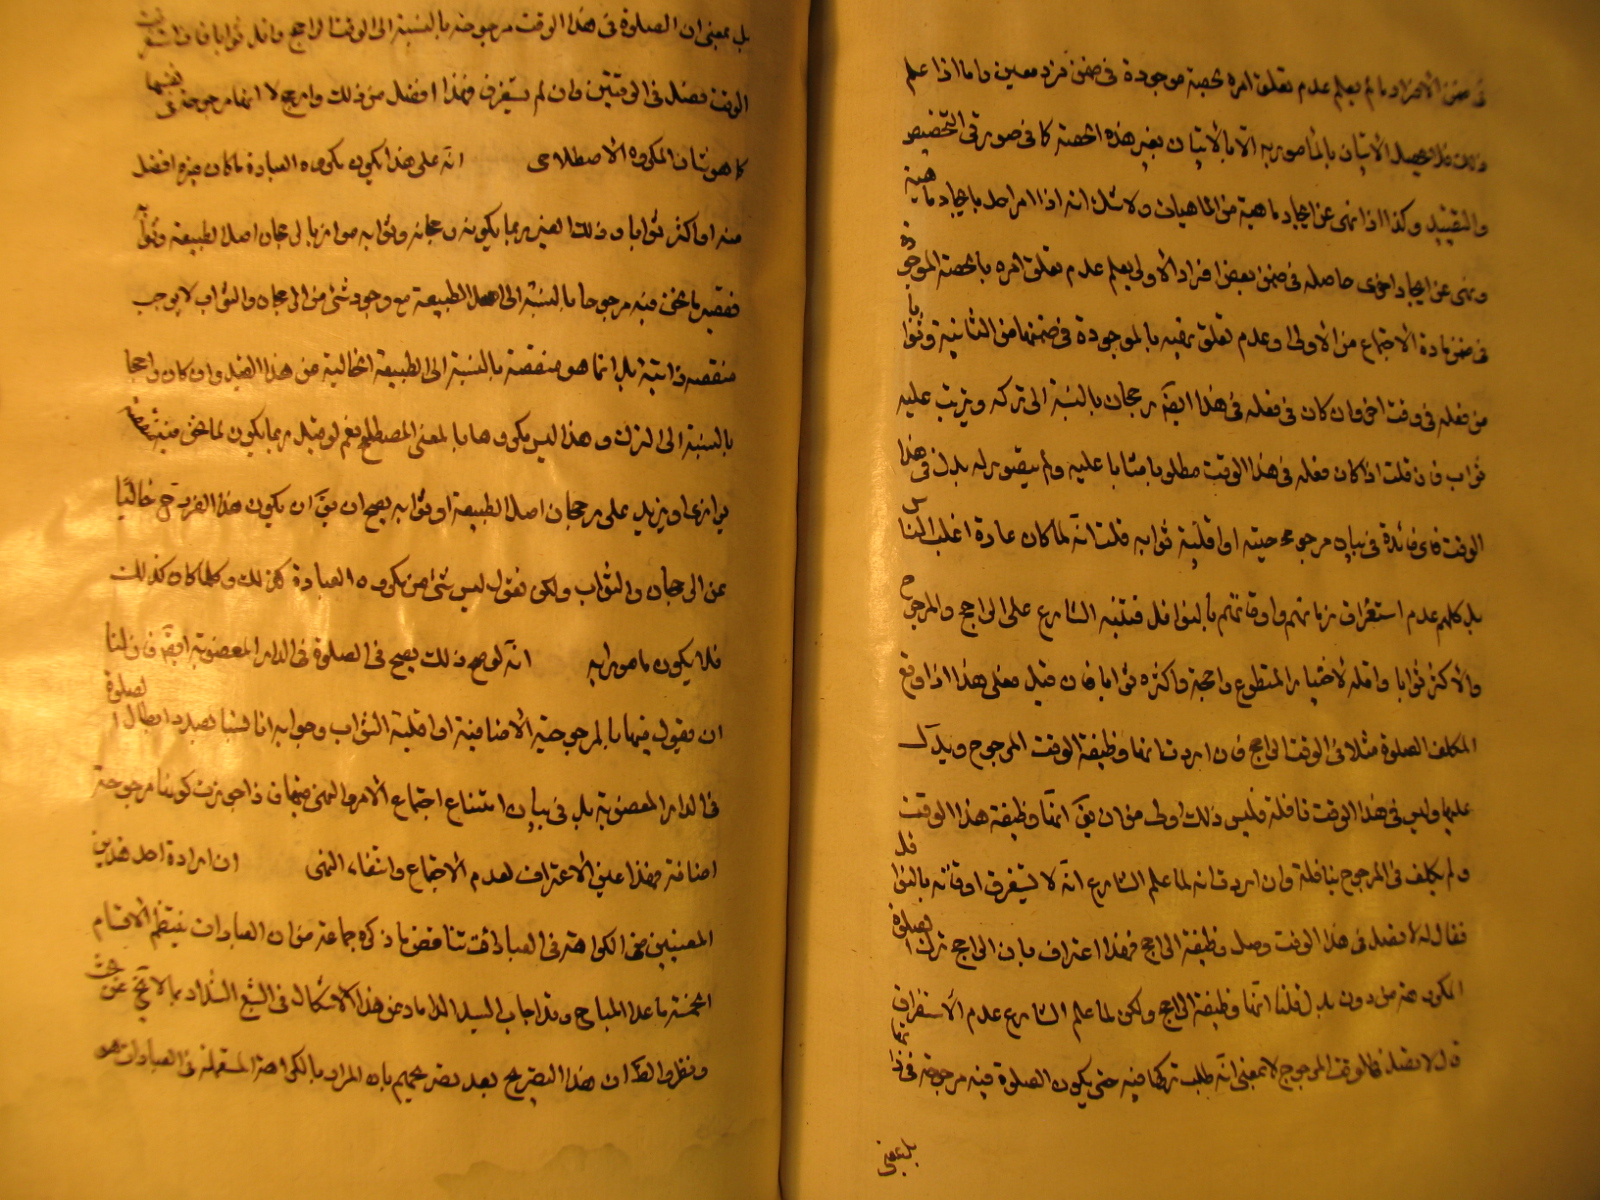 في ضمن الأفراد ما لم يعلم عدم تعلق امره بحصة موجودة في ضمن فرد معين واما اذا علم
ذلك فلا يحصل الاتيان بالمأمور به الا بالاتيان بغير هذه الحصة كما في صورتي التخصيص
والتقييد وكذا اذا نهى عن ايجاد ماهية من الماهيات ولا شك انه اذا امر احد بايجاد ماهية
ونهى عن ايجاد اخرى حاصله في ضمن بعض افراد الأولى يعلم عدم تعلق امره بالحصة الموجودة
في ضمن مادة الاجتماع من الأولى وعدم تعلق نهيه بالموجودة في ضمنها من الثانية وثوابا
من فعله في وقت اخر وان كان في فعله في هذا ايضا رجحان بالنسبة الى تركه ويترتب عليه
ثواب فان قلت اذا كان فعله في هذا الوقت مطلوبا مثابا عليه ولم يتصور له بدل في هذا
الوقت فاي فائدة في بيان مرجوحيته او اقلية ثوابه قلت انه لما كان عادة اغلب الناس
بل كلهم عدم استغراق زمانهم واوقاتهم بالنوافل فنبه الشارع على الراجح والمرجوح
والأكثر ثوابا واقله لاختيار المتطوع راجحة واكثره ثوابا فان قيل فعلى هذا اذا وقع
المكلف الصلوة مثلا في الوقت الراجح فان اردت انها وظيفة الوقت المرجوح وبدل
عليها وليس في هذا الوقت نافلة فليس ذلك اولى من ان يقال انها وظيفة هذا الوقت
ولم يكلف في المرجوح بنافلة وان اردت انه لما علم الشارع انه لا يستغرق اوقاته بالنوافل
فقال له لا تصل في هذا الوقت وصل وظيفة الراجح فهذا اعتراف بان الراجح ترك الصلوة
المكروهة من دون بدل قلنا انها وظيفة الراجح ولكن لما علم الشارع عدم الاستغراق
قال لا تصل في الوقت المرجوح لا بمعنى انه طلب تركها فيه حتى يكون الصلوة فيه مرجوحة في ذاتها
بل بمعنى
بل بمعنى ان الصلوة في هذا الوقت مرجوحة بالنسبة الى الوقت الراجح واقل ثوابا فان استغرقت
الوقت فصل في الوقتين وان لم تستغرق فهذا افضل من ذلك وارجح لا انها مرجوحة في نفسها
كما هو شان المكروه الاصطلاحي انه على هذا يكون مكروه العبادة ما كان غيره افضل
منه او اكثر ثوابا وذلك الغير ربما يكون رجحانه وثوابه موازيا لرجحان اصل الطبيعة وثوابه
فتصير ما نحن فيه مرجوحا بالنسبة الى اصل الطبيعة مع وجود شئ من الرجحان والثواب لا يوجب
منقصة ذاتية بل انما هو منقصة بالنسبة الى الطبيعة الخالية من هذا القيد وان كان راجحا
بالنسبة الى الترك وهذا ليس مكروها بالمعنى المصطلح نعم لو قيل ربما يكون لما نحن فيه منقصة
يوازي او يزيد على رجحان اصل الطبيعة او ثوابه يصح ان يقال ان يكون هذا الفرد ح خاليا
عن الرجحان والثواب ولكن نقول ليس شئ من مكروه العبادة كذلك وكلما كان كذلك
فلا يكون مامورا به انه لو صح ذلك يصح في الصلوة في الدار المغصوبة ايضا فان لنا
ان نقول فيها بالمرجوحية الاضافية او اقلية الثواب وجوابه انا لسنا بصدد ابطال الصلوة
في الدار المغصوبة بل في بيان امتناع اجتماع الأمر والنهي فيها فاذا جوزت كونها مرجوحة
اضافة فهذا عين الاعتراف لعدم الاجتماع وانتفاء النهي ان ارادة احد هذين
المعنيين من الكراهة في العبادات تناقض ما ذكره جماعة من ان العبادات ينتظم الأقسام
الخمسة ما عدا المباح وقد اجاب السيد الداماد عن هذا الاشكال في السبع الشداد بما لا يخ عن
ونظر والظ ان هذا التصريح بعد تصريحهم بان المراد بالكراهة المستعملة في العبادات هو